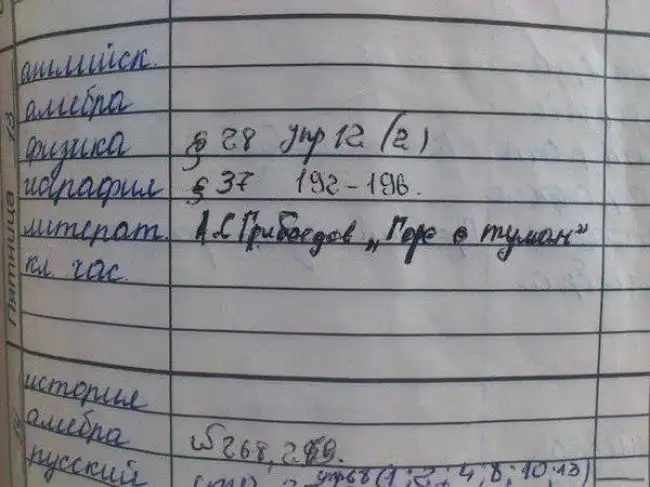 Пятница
английск.
алгебра
физика § 28 упр 12 (2)
география § 37 192-196.
литерат. А.С Грибоедов „Горе о туман"
кл. час.
история
алгебра № 268, 269.
русский упр 68 (1; 2; 4, 8; 10; 13)